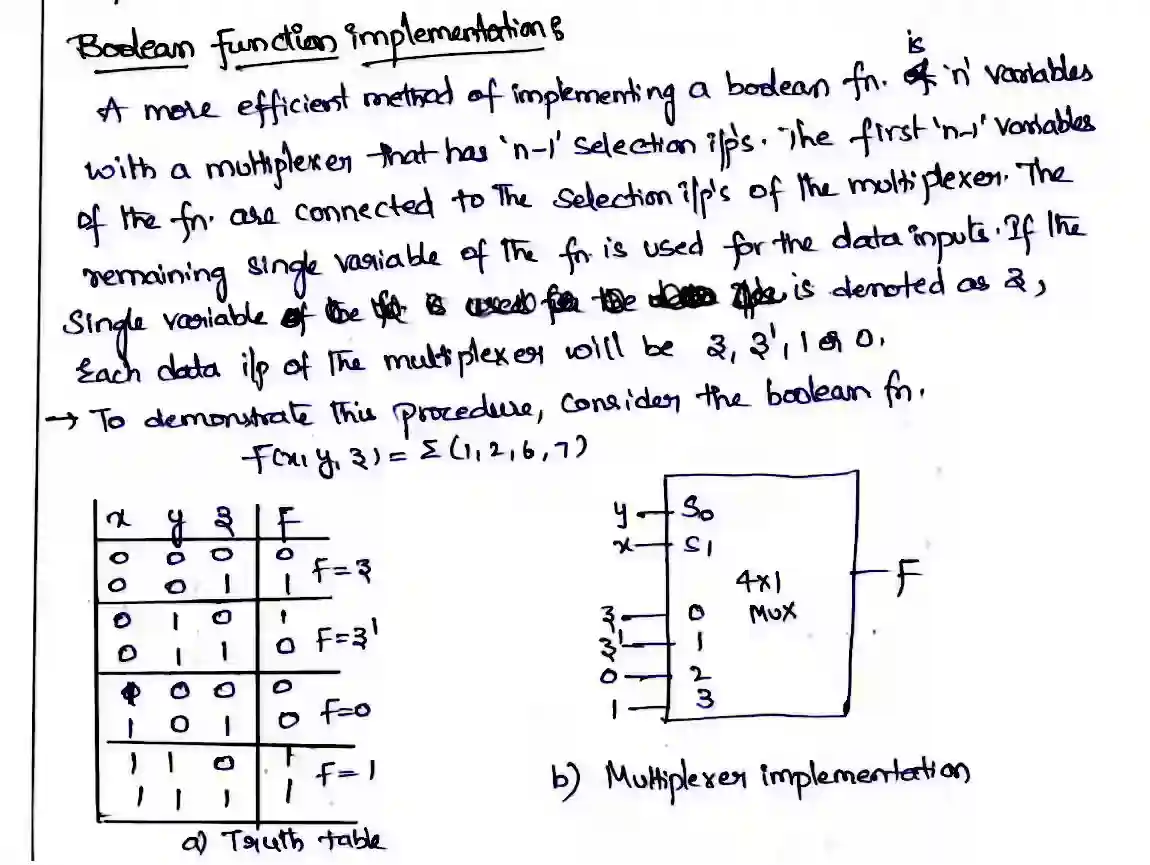 Boolean function implementations
A more efficient method of implementing a boolean fn. is 'n' variables
with a multiplexer that has 'n-1' selection i/p's. The first 'n-1' variables
of the fn. are connected to the selection i/p's of the multiplexer. The
remaining single variable of the fn. is used for the data inputs. If the
Single variable is denoted as z,
Each data i/p of the multiplexer will be z, z', 1 or 0.
→ To demonstrate this procedure, consider the boolean fn.
F(x, y, z) = Σ (1, 2, 6, 7)
x y z F
0 0 0 0
0 0 1 1
F=z
0 1 0 1
0 1 1 0
F=z'
1 0 0 0
1 0 1 0
F=0
1 1 0 1
1 1 1 1
F=1
a) Truth table
y S0
x S1
4x1
MUX
F
z 0
z' 1
0 2
1 3
b) Multiplexer implementation